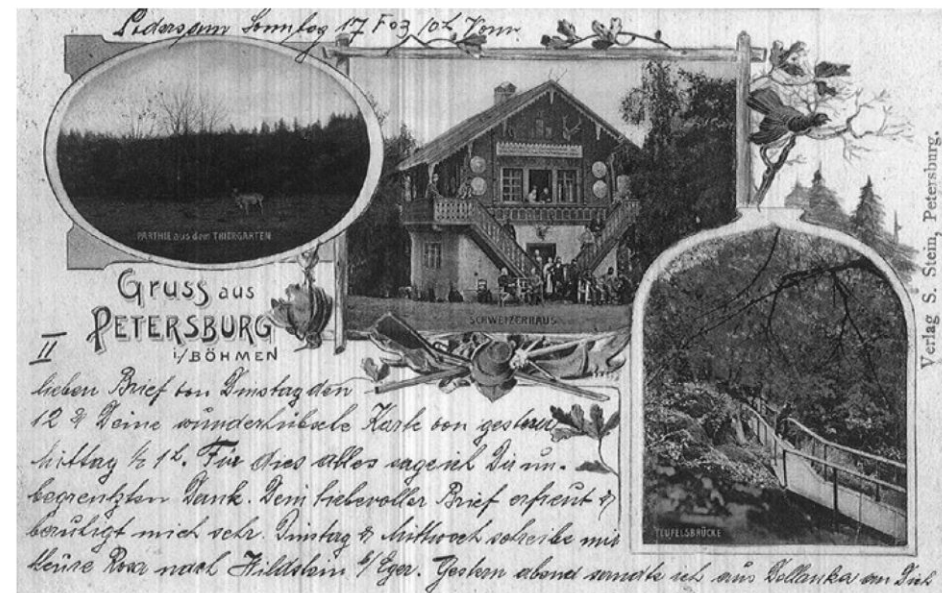 Podersam Sonntag 17 F 03 10h Vorm.
PARTHIE aus dem THIERGARTEN
SCHWEIZERHAUS
Verlag S. Stein, Petersburg.
Gruss aus
PETERSBURG
i/BÖHMEN
TEUFELSBRÜCKE
II
lieben Brief von Dinstag den
12 & Deine wunderhübsche Karte von gestern
Mittag ½ 1h. Für dies alles sage ich Dir un-
begrenzten Dank. Dein liebevoller Brief erfreut &
beruhigt mich sehr. Dinstag & Mittwoch schreibe mir
theure Rosa nach Wildstein b/Eger. Gestern abend sandte ich aus an Dich